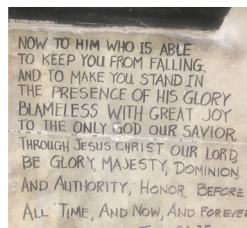 NOW TO HIM WHO IS ABLE
TO KEEP YOU FROM FALLING.
AND TO MAKE YOU STAND IN
THE PRESENCE OF HIS GLORY
BLAMELESS WITH GREAT JOY
TO THE ONLY GOD OUR SAVIOR,
THROUGH JESUS CHRIST OUR LORD,
BE GLORY, MAJESTY, DOMINION,
AND AUTHORITY, HONOR, BEFORE
ALL TIME, AND NOW, AND FOREVER